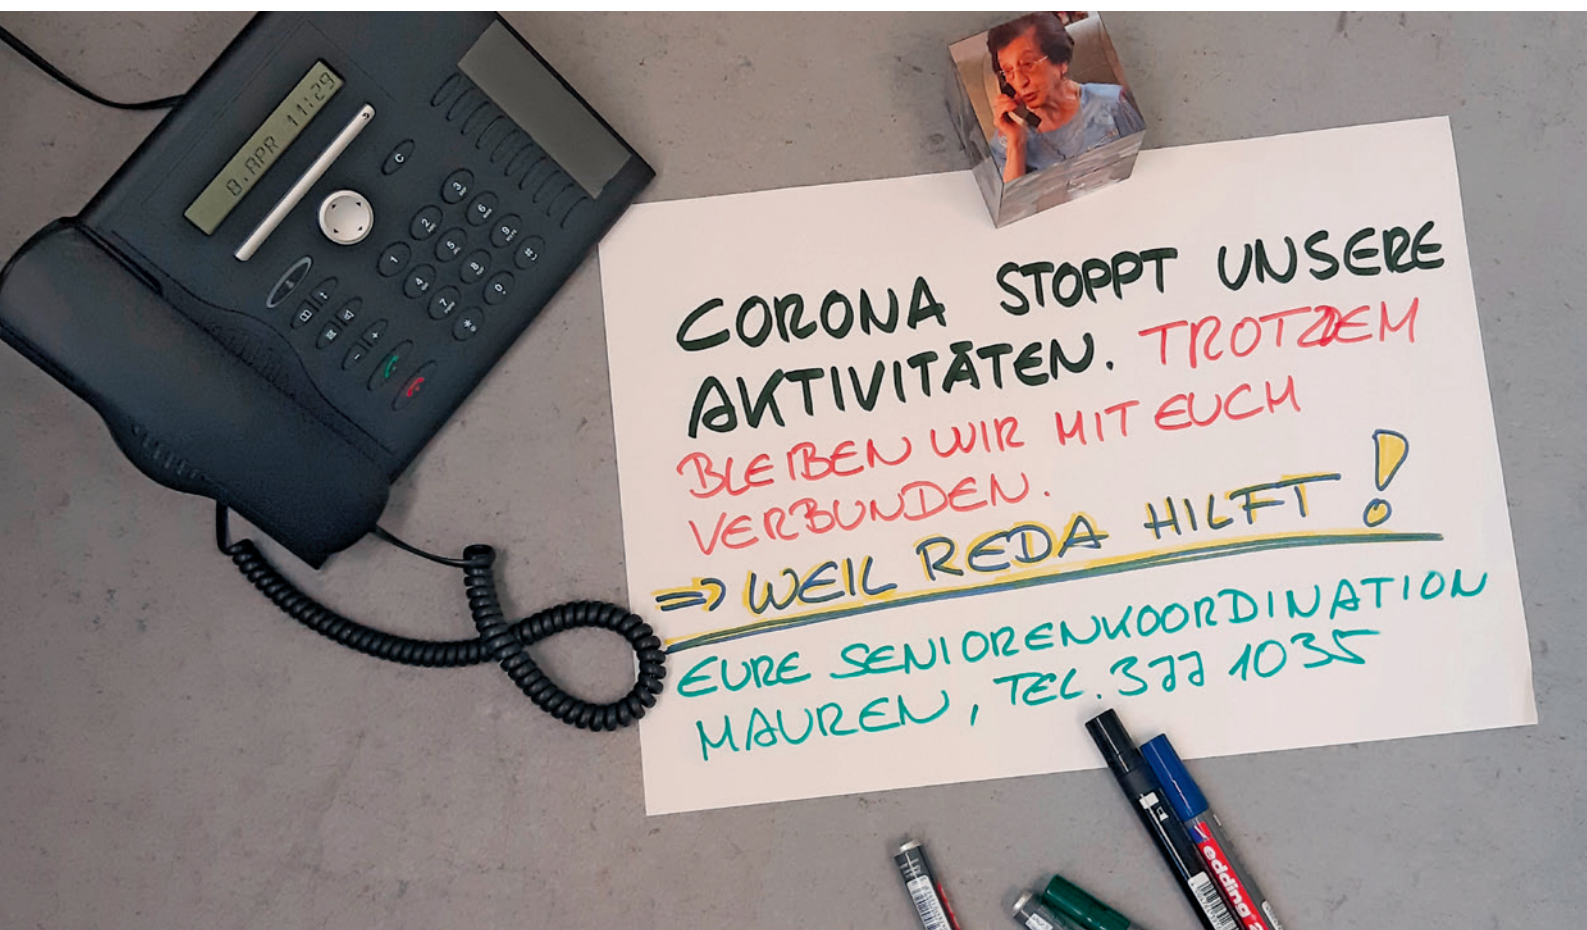 8.APR 11:29
C
1
2
3
4
5
6
7
8
9
*
0
#
CORONA STOPPT UNSERE
AKTIVITÄTEN. TROTZDEM
BLEIBEN WIR MIT EUCH
VERBUNDEN.
=> WEIL REDA HILFT!
EURE SENIORENKOORDINATION
MAUREN, TEL. 377 1035
edding